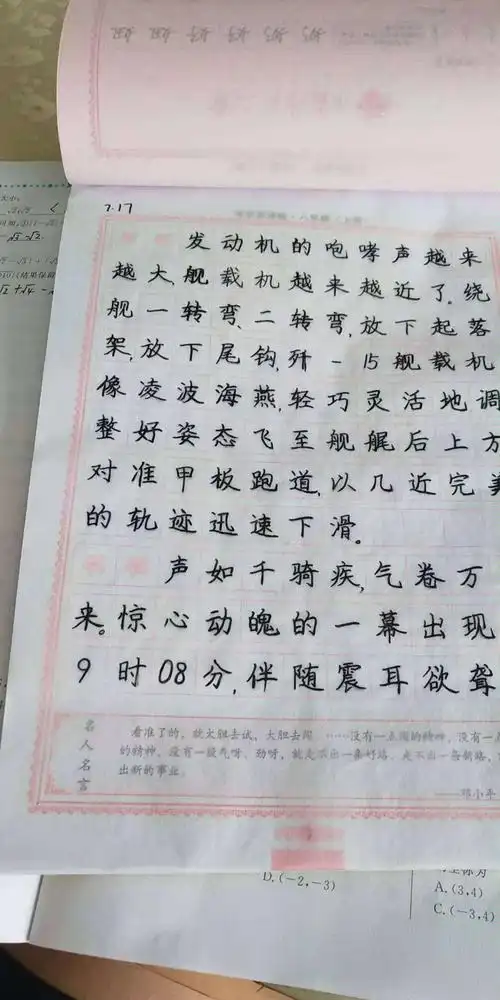 7.17
发动机的咆哮声越来
越大,舰载机越来越近了。绕
舰一转弯、二转弯,放下起落
架,放下尾钩,歼-15舰载机
像凌波海燕,轻巧灵活地调
整好姿态飞至舰艉后上方
对准甲板跑道,以几近完美
的轨迹迅速下滑。
声如千骑疾,气卷万
来。惊心动魄的一幕出现
9时08分,伴随震耳欲聋
名人名言
看准了的,就大胆地试,大胆地闯……没有一点闯的精神,没有一点
的精神,没有一股气呀、劲呀,就走不出一条好路,走不出一条新路,
出新的事业。
——邓小平
D.(-2,-3)
A.(3,4)
C.(-3,4)